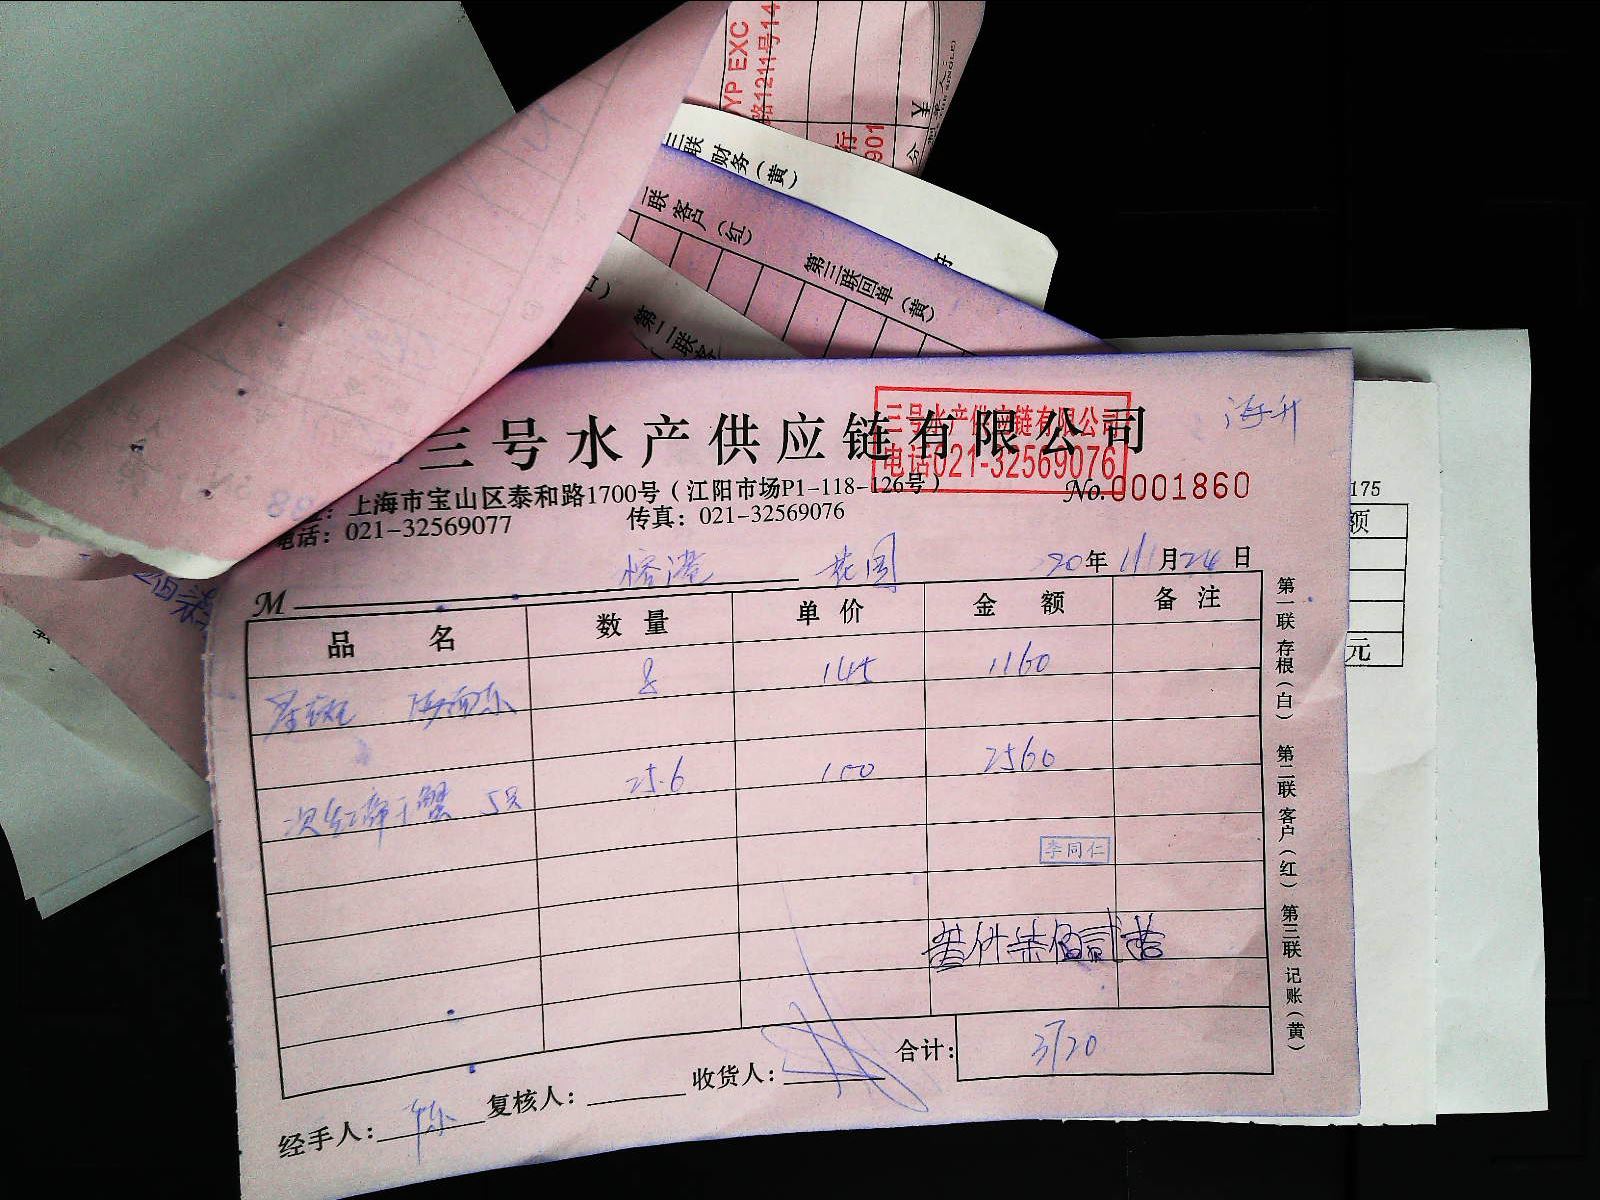 YP EXC
路1211号14
行
901
¥
三联 财务（黄）
联 客户（红）
第三联回单（黄）
第二联客
海升
三号水产供应链有限公司
三号水产供应链有限公司
电话021-32569076
上海市宝山区泰和路1700号（江阳市场P1-118-126号）
No. 0001860
电话：021-32569077
传真：021-32569076
175
额
元
榕港 花园
20年11月24日
M
品 名 数 量 单 价 金 额 备 注
8 145 1160
25.6 100 2560
蟹 5只
李同仁
叁仟柒佰贰拾
合计： 3720
经手人： 复核人： 收货人：
第一联 存根（白） 第二联 客户（红） 第三联 记账（黄）